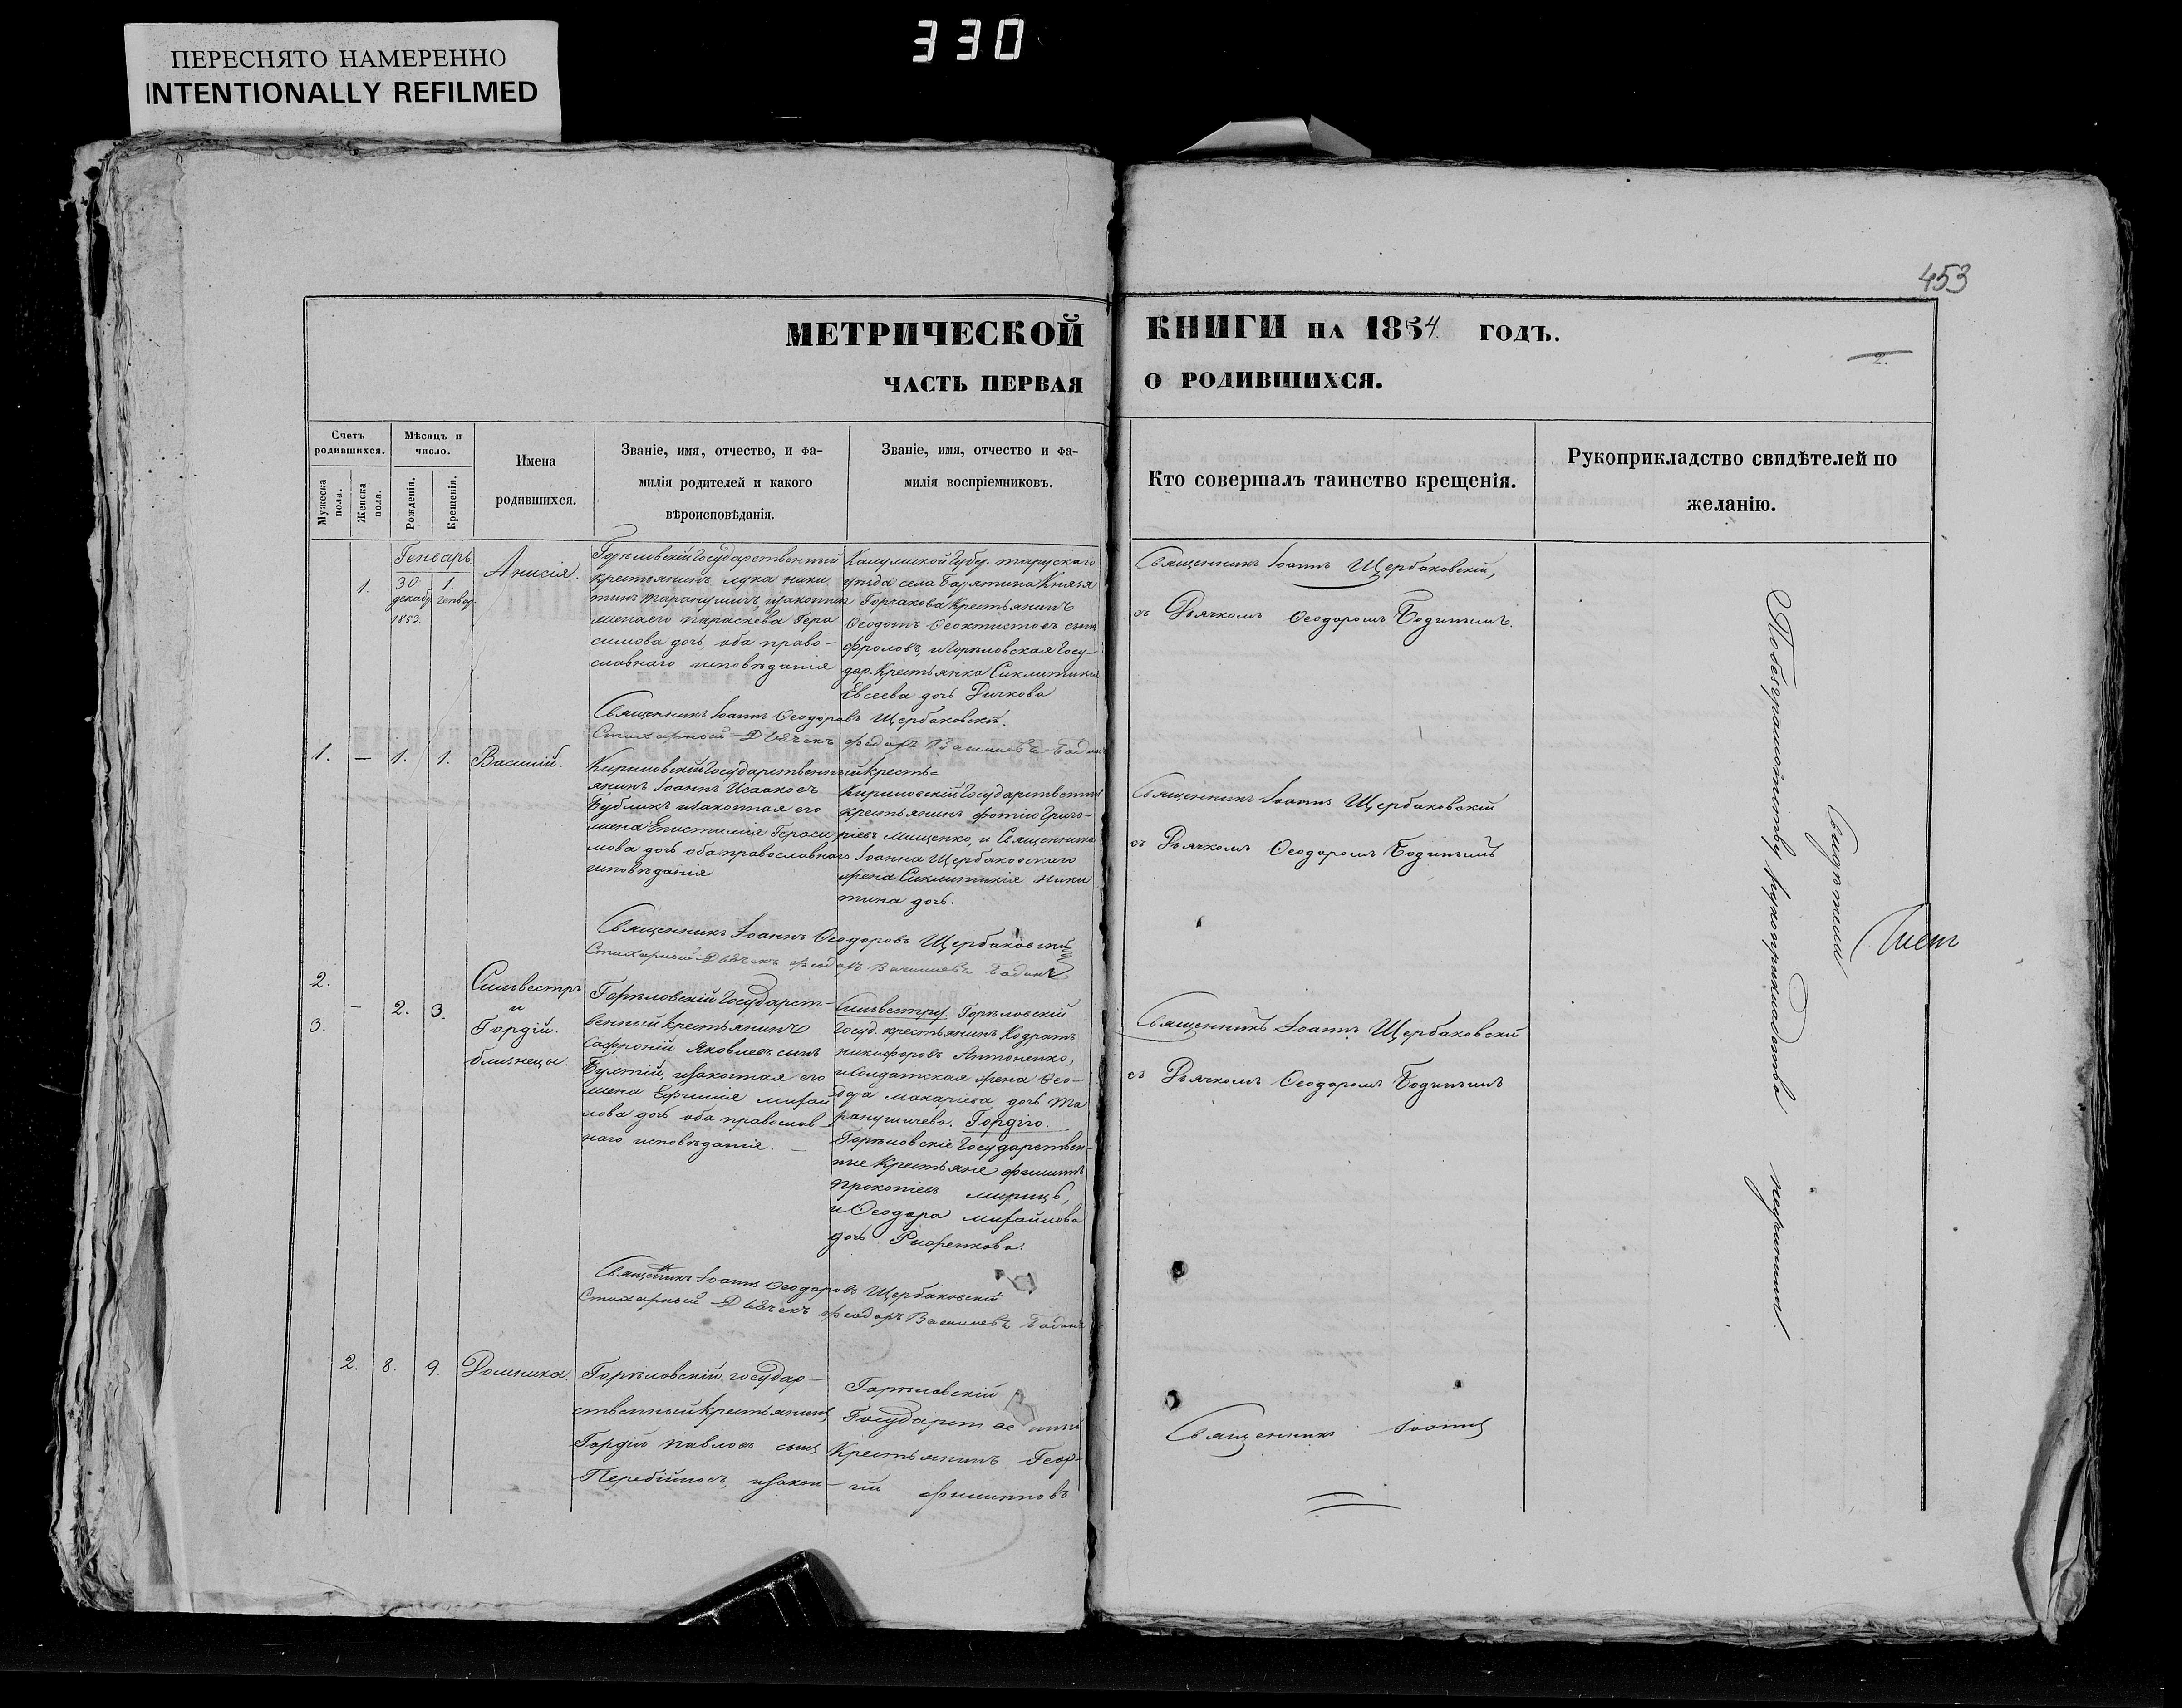 330
ПЕРЕСНЯТО НАМЕРЕННО
INTENTIONALLY REFILMED
453
МЕТРИЧЕСКОЙ КНИГИ НА 1854 ГОДЪ.
2.
ЧАСТЬ ПЕРВАЯ О РОДИВШИХСЯ.
Счетъ родившихся.
Мужеска пола.
Женска пола.
Мѣсяцъ и число.
Рожденія.
Крещенія.
Имена
родившихся.
Званіе, имя, отчество, и фа-
милія родителей и какого
вѣроисповѣданія.
Званіе, имя, отчество и фа-
милія воспріемниковъ.
Кто совершалъ таинство крещенія.
Рукоприкладство свидѣтелей по
желанію.
Генварь
1.
30. декабр. 1853.
1. Генвар.
Анисія.
Горѣловскій Государственный
крестьянинъ Лука Ники
тинъ
Параскева Гера
симова дочь, оба право-
славнаго исповѣданія
Калужской Губер. Тарускаго
уѣзда села Барятина Князя
Горчакова Крестьянинъ
Ѳеодотъ Ѳеоктистовъ сынъ
Фроловъ, и Горѣловская Госу-
дар. Крестьянка Сиклитикія
Евсеева дочь Дичкова
Священникъ Іоаннъ Щербаковскій,
съ Дьячкомъ Ѳеодоромъ
Священникъ Іоаннъ Ѳеодоровъ Щербаковскій.
Стихарный Дьячекъ Федоръ Васильевъ
1. — 1. 1. Василій.
Кириловскій Государственный кресть=
янинъ Іоаннъ Исааковъ
Бубликъ и законная его
жена Епистимія Гераси
мова дочь оба православнаго
исповѣданія
Кириловскій Государственный
крестьянинъ Фотій Григо-
ріевъ Мищенко, и Священника
Іоанна Щербаковскаго
жена Сиклитикія Ники
тина дочь.
Священникъ Іоаннъ Щербаковскій
съ Дьячкомъ Ѳеодоромъ
Священникъ Іоаннъ Ѳеодоровъ Щербаковскій
Стихарный Дьячекъ Федоръ Васильевъ
2.
3.
— 2. 3.
Сильвестръ
и
Гордій.
близнецы.
Горѣловскій Государст-
венный крестьянинъ
Софроній Яковлевъ сынъ
и законная его
жена Ефимія Михай
лова дочь оба православ-
наго исповѣданія. —
Сильвестру: Горѣловскій
Госуд. крестьянинъ Кодратъ
Никифоровъ Антоненко,
и Солдатская жена Ѳео-
дора Макаріева дочь Та
Гордію.
Горѣловскіе Государствен-
ные Крестьяне Филиппъ
Прокопіевъ
и Ѳеодора Михайлова
дочь
Священникъ Іоаннъ Щербаковскій
съ Дьячкомъ Ѳеодоромъ
Священникъ Іоаннъ Ѳеодоровъ Щербаковскій
Стихарный Дьячекъ Федоръ Васильевъ
2. 8. 9. Домника.
Горѣловскій государ-
ственный крестьянинъ
Гордій Павловъ сынъ
Перебійносъ, и закон-
Горѣловскій
Государственный
Крестьянинъ Геор-
гій Филипповъ
Священникъ Іоаннъ
По безграмотству рукоприкладства
Свидѣтели